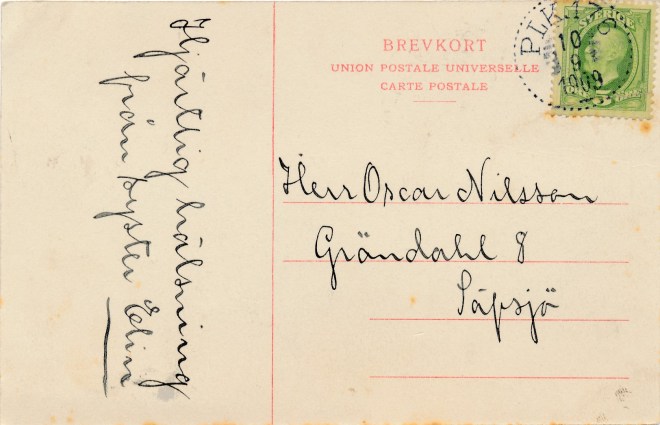 Hjärtlig hälsning
från syster Elin
BREVKORT
UNION POSTALE UNIVERSELLE
CARTE POSTALE
PLK
10
9
1909
SVERIGE
Herr Oscar Nilsson
Gröndahl 8
Säfsjö